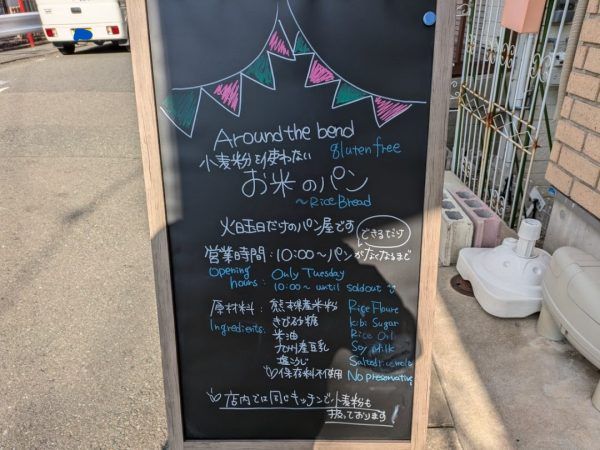 Around the bend
小麦粉を使わない gluten free
お米のパン
~Rice Bread
火曜日だけのパン屋です
できるだけ
営業時間:10:00〜パンがなくなるまで
Opening Only Tuesday
hours: 10:00~ until soldout
原材料: 熊本県産米粉 Rice Floure
Ingredients: きび砂糖 kibi Sugar
米油 Rice Oil
九州産豆乳 Soy Milk
塩こうじ Salted rice malt
保存料不使用 No preservative
店内では同じキッチンで小麦粉も
扱っております!